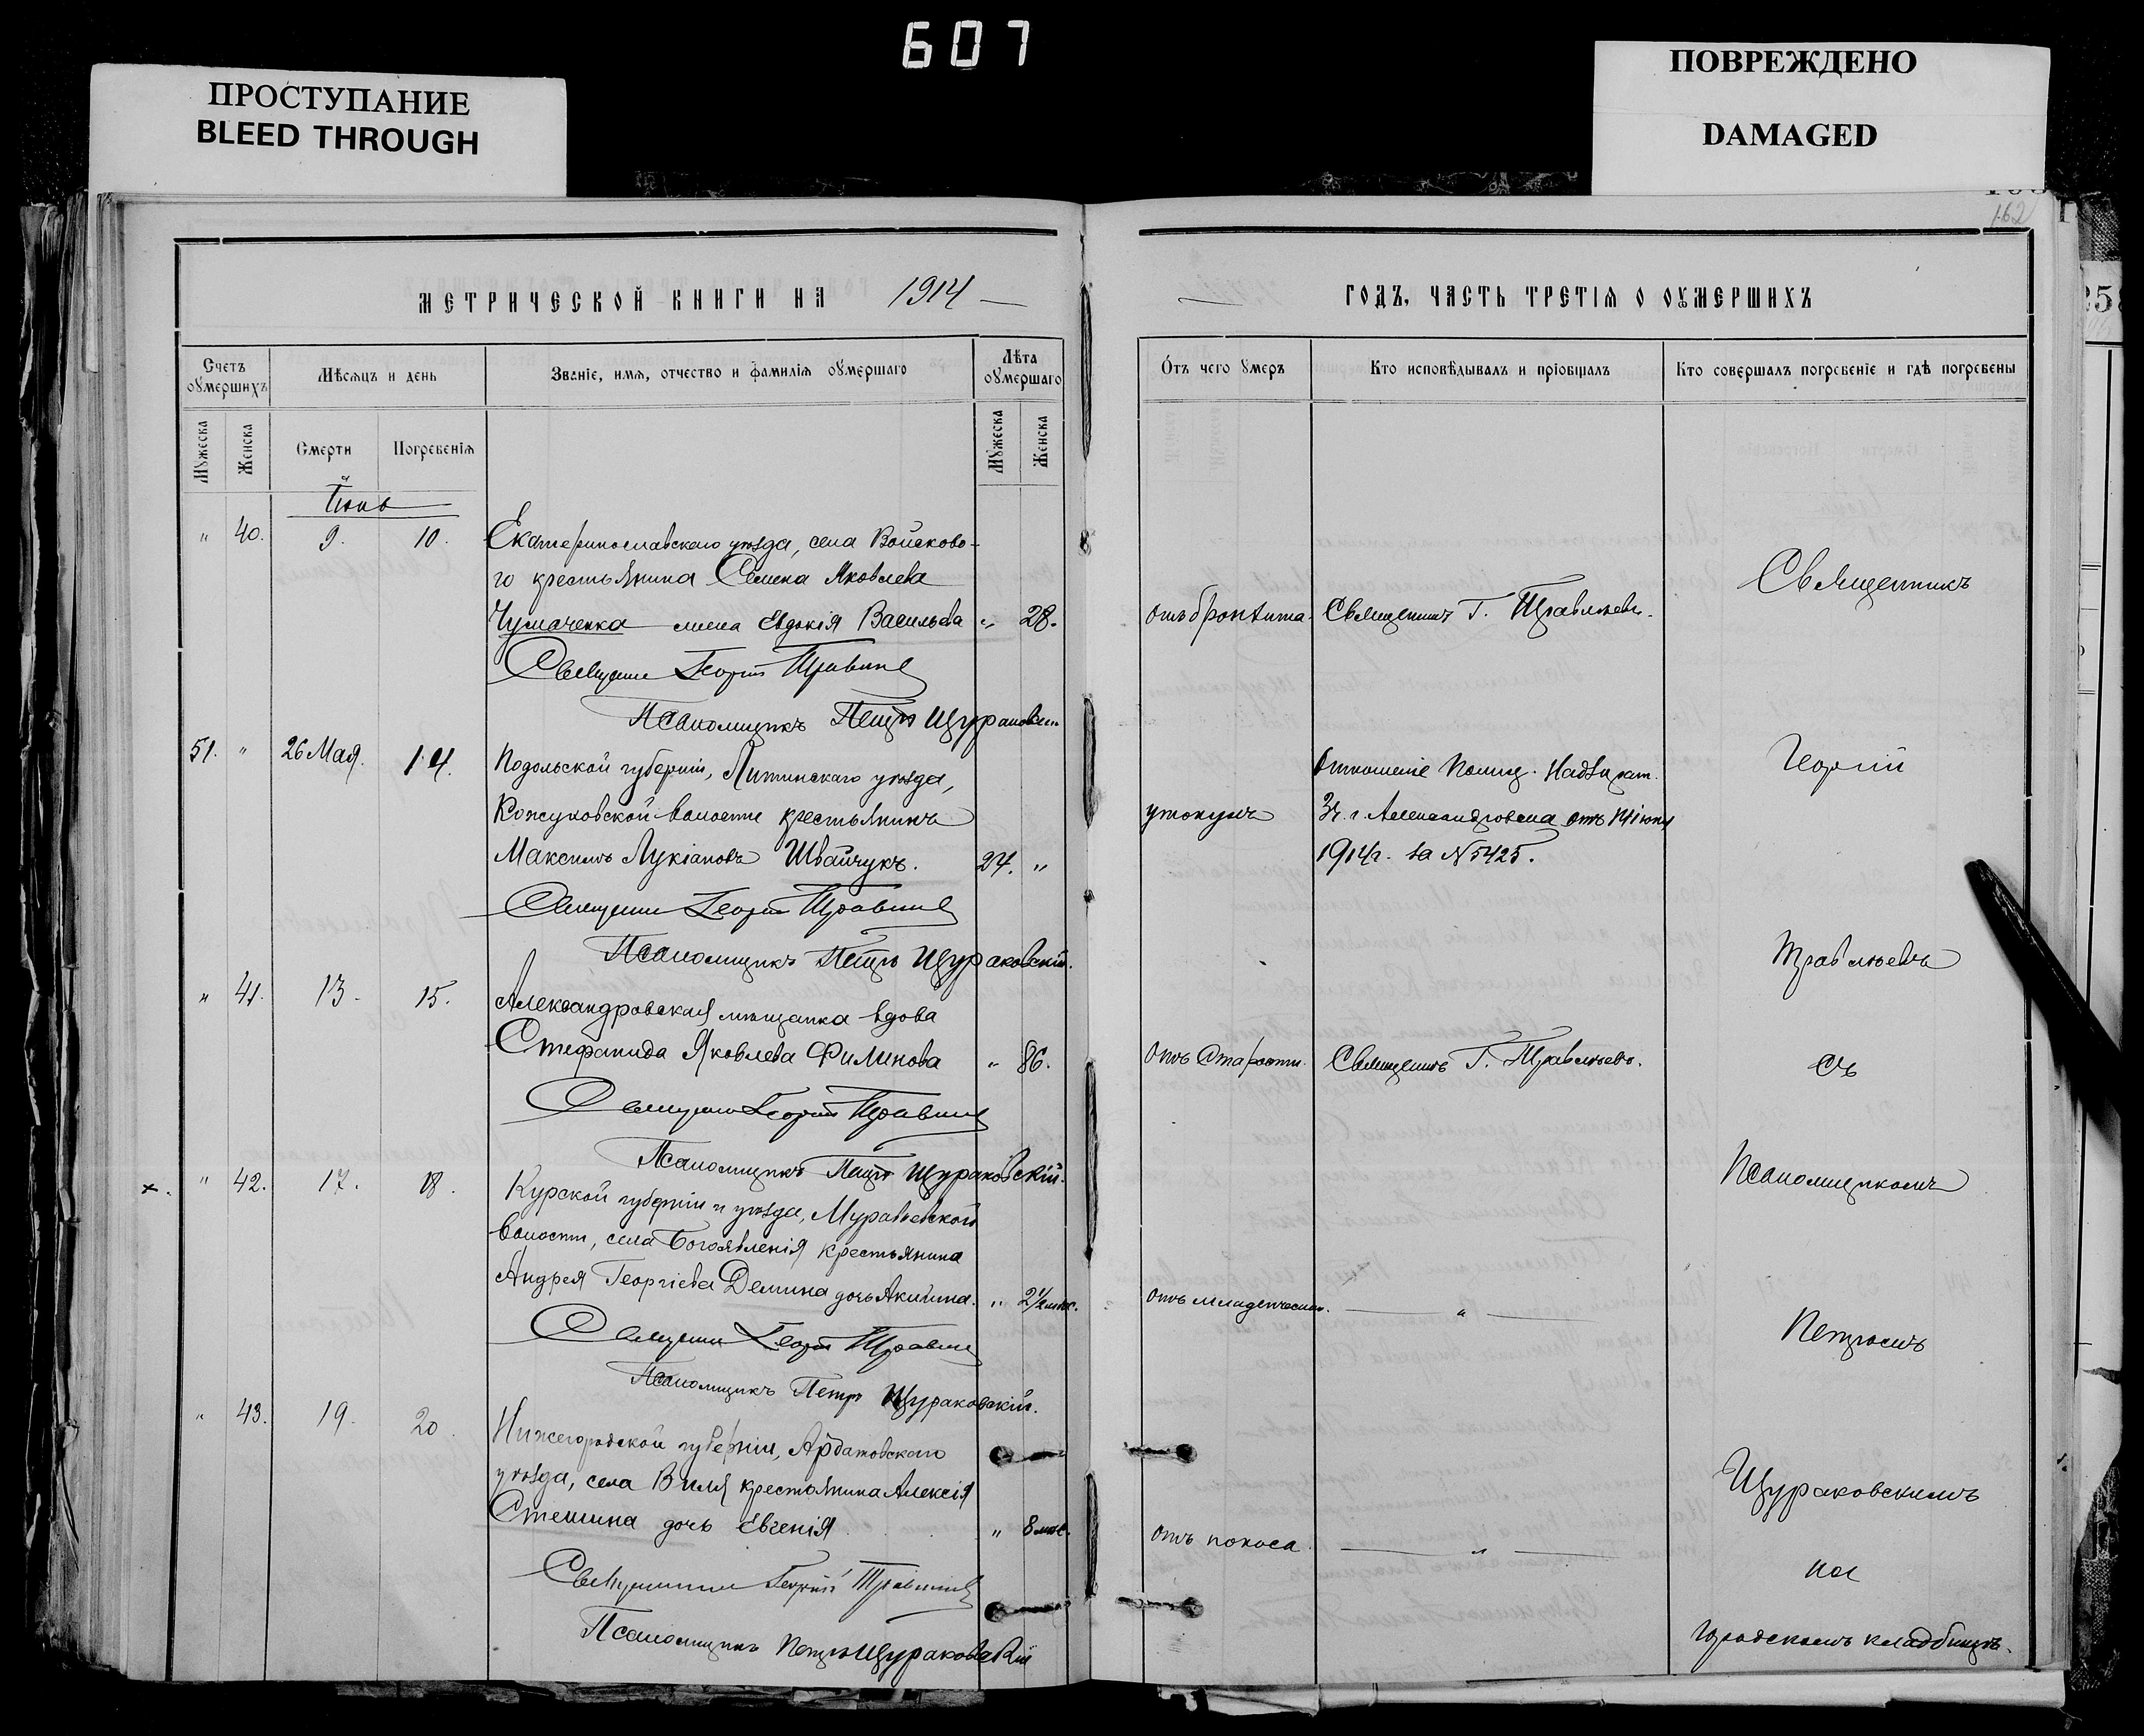 607
ПРОСТУПАНИЕ
BLEED THROUGH
ПОВРЕЖДЕНО
DAMAGED
162
МЕТРИЧЕСКОЙ КНИГИ НА 1914
ГОДЪ, ЧАСТЬ ТРЕТІѦ О ОУМЕРШИХЪ
Счетъ оумершихъ
Мѣсяцъ и день
Званіе, имя, отчество и фамилія оумершаго
Лѣта оумершаго
Отъ чего умеръ
Кто исповѣдывалъ и пріобщалъ
Кто совершалъ погребеніе и гдѣ погребены
Мужеска
Женска
Смерти
Погребенія
Мужеска
Женска
Іюнь
" 40. 9. 10. Екатеринославскаго уѣзда, села Войсково-
го крестьянина Семена Яковлева
Чумаченка жена Евдокія Васильева " 28.
отъ бронхита. Священникъ Г. Травлѣевъ.
Священникъ Георгій
Псаломщикъ Петръ Щураковскій
51. " 26 Мая. 14. Подольской губерніи, Литинскаго уѣзда,
Кожуховской волости крестьянинъ
Максимъ Лукіановъ Швайчукъ. 24. "
утонулъ
Отношеніе Полиц. Надзират.
3 ч. г. Александровска отъ 14 іюня
1914 г. за № 5425.
Священникъ Георгій
Псаломщикъ Петръ Щураковскій.
" 41. 13. 15. Александровская мѣщанка вдова
Стефанида Яковлева Филинова " 86.
отъ старости. Священникъ Г. Травлѣевъ.
Священникъ Георгій
Псаломщикъ Петръ Щураковскій.
" 42. 17. 18. Курской губерніи и уѣзда, Муравлевской
волости, села Богоявленія крестьянина
Андрея Георгіева Демина дочь Акилина. " 2½ мѣс.
отъ младенческой. "
Священникъ Георгій
Псаломщикъ Петръ Щураковскій.
" 43. 19. 20. Нижегородской губерніи, Ардатовскаго
уѣзда, села Виля крестьянина Алексія
Стешина дочь Евгенія " 8 мѣс.
отъ поноса "
Священникъ Георгій
Псаломщикъ Петръ Щураковскій
Священникъ
Георгій
Травлѣевъ
съ
Псаломщикомъ
Петромъ
Щураковскимъ
на
городскомъ кладбищѣ.